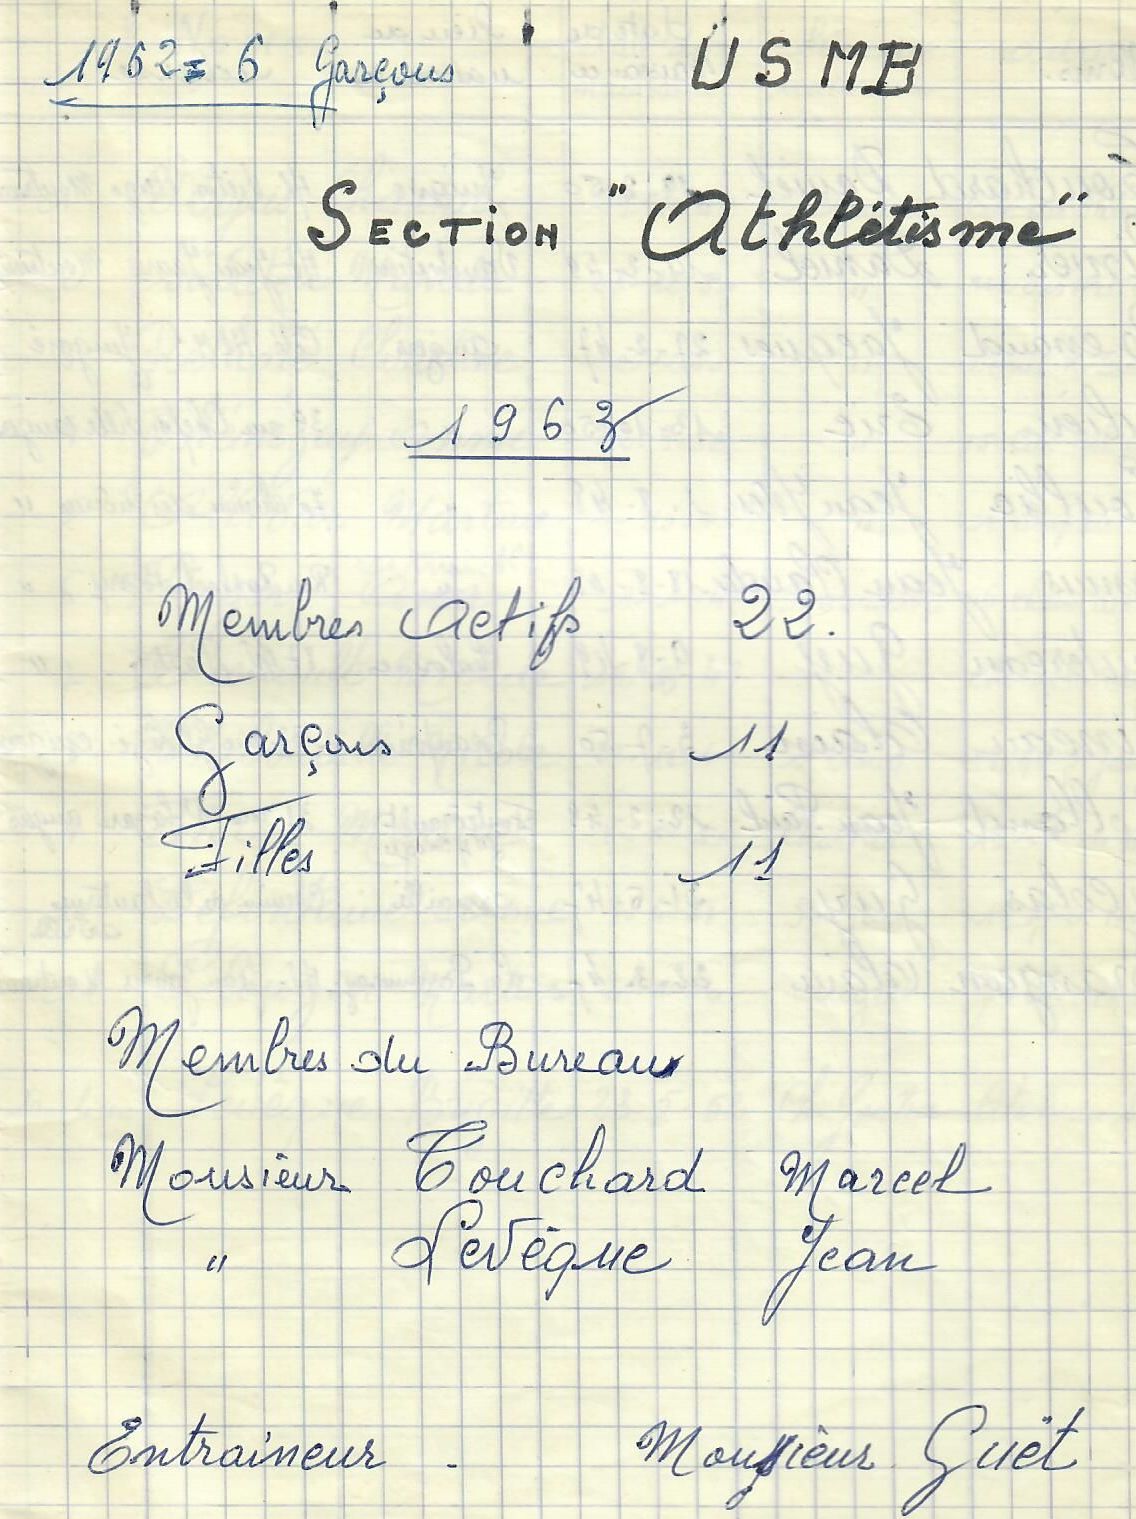 1962 = 6 Garçons
USMB
SECTiON "Athlétisme"
1963
Membres Actifs 22.
Garçons 11
Filles 11
Membres du Bureau
Monsieur Touchard Marcel
" Levêque Jean
Entraineur . Monsieur Guët